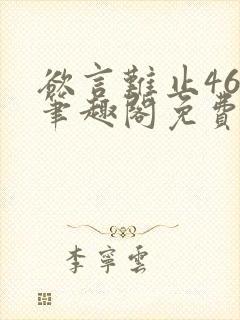 欲言難止46
筆趣閣免費
李寧雲